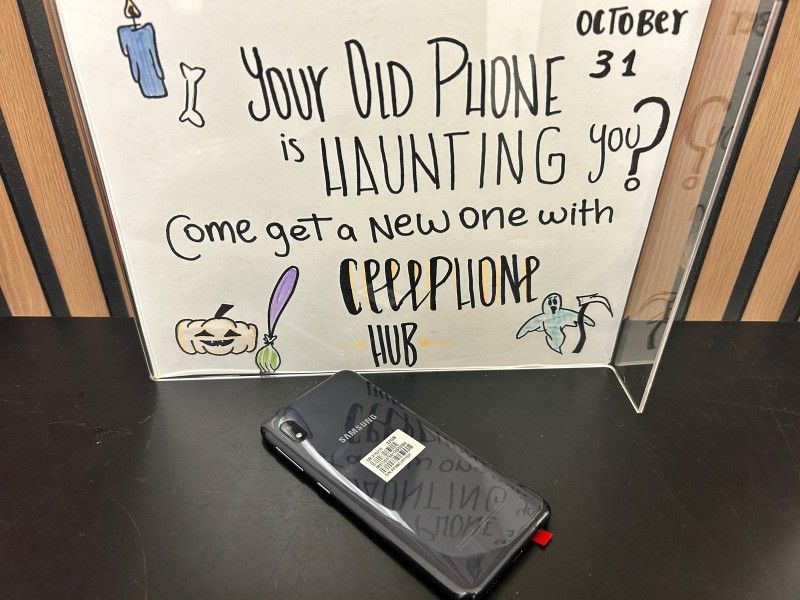 OCTOBER
31
Your Old Phone
is HAUNTING you?
Come get a New one with
CELLPHONE
HUB
SAMSUNG